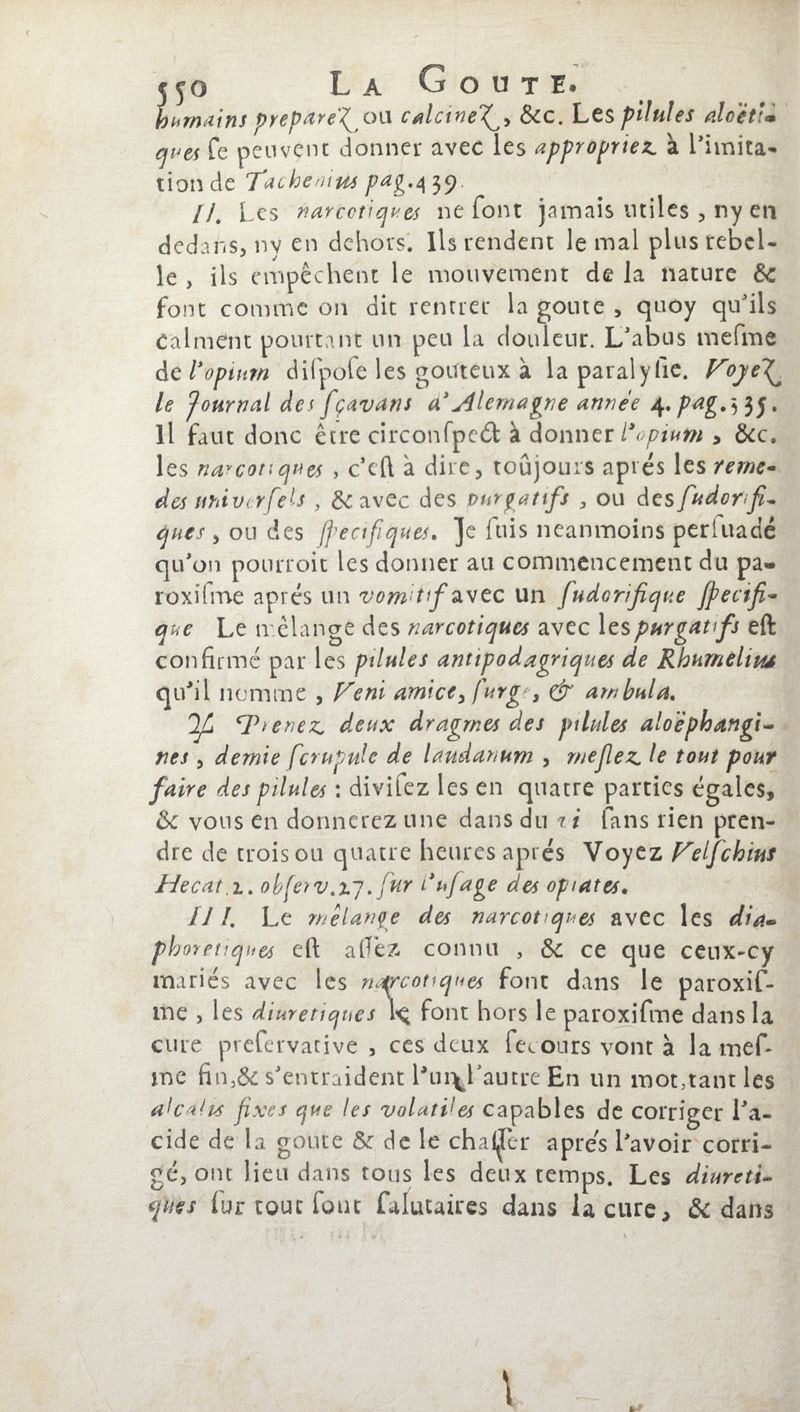 550 LA GOUTE.
humains preparez ou calcinez, &c. Les pilules aloëti-
ques ſe peuvent donner avec les appropriez à l'imita-
tion de Tachenius pag.439.
II. Les narcotiques ne ſont jamais utiles, ny en
dedans, ny en dehors. Ils rendent le mal plus rebel-
le, ils empêchent le mouvement de la nature &
font comme on dit rentrer la goute, quoy qu'ils
calment pourtant un peu la douleur. L'abus meſme
de l'opium diſpoſe les gouteux à la paralyſie. Voyez
le Journal des ſçavans d'Alemagne année 4. pag.335.
Il faut donc être circonſpect à donner l'opium, &c.
les narcotiques, c'eſt à dire, toûjours aprés les reme-
des univerſels, & avec des purgatifs, ou des ſudorifi-
ques, ou des ſpecifiques. Je ſuis neanmoins perſuadé
qu'on pourroit les donner au commencement du pa-
roxiſme aprés un vomitif avec un ſudorifique ſpecifi-
que Le mêlange des narcotiques avec les purgatifs eſt
confirmé par les pilules antipodagriques de Rhumelius
qu'il nomme, Veni amice, ſurge, & ambula.
♃ Prenez deux dragmes des pilules aloëphangi-
nes, demie ſcrupule de laudanum, meſlez le tout pour
faire des pilules : diviſez les en quatre parties égales,
& vous en donnerez une dans du ſans rien pren-
dre de trois ou quatre heures aprés Voyez Velſchius
Hecat.2. obſerv.27. ſur l'uſage des opiates.
III. Le mêlange des narcotiques avec les dia-
phoretiques eſt aſſez connu, & ce que ceux-cy
mariés avec les narcotiques font dans le paroxiſ-
me, les diuretiques le font hors le paroxiſme dans la
cure preſervative, ces deux ſecours vont à la meſ-
me fin,& s'entraident l'un l'autre En un mot,tant les
alcalis fixes que les volatiles capables de corriger l'a-
cide de la goute & de le chaſſer aprés l'avoir corri-
gé, ont lieu dans tous les deux temps. Les diureti-
ques ſur tout ſont ſalutaires dans la cure, & dans